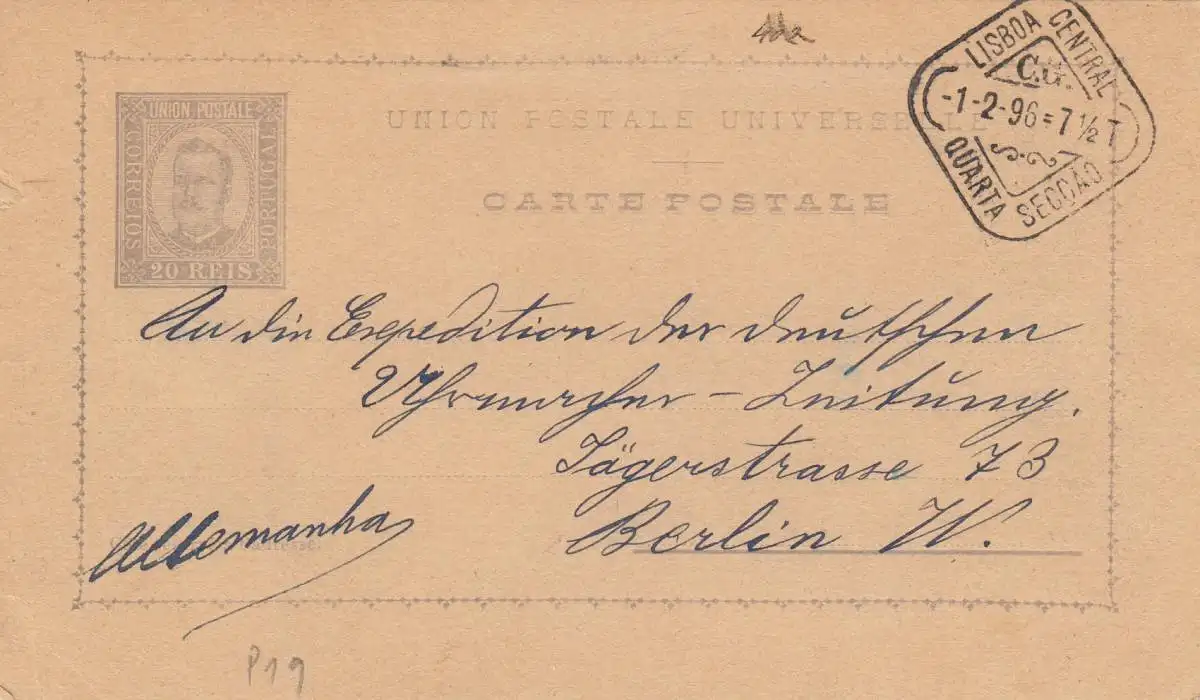 LISBOA CENTRAL
C.G.
-1-2-96=7 1/2 T
QUARTA SECÇÃO
UNION POSTALE UNIVERSELLE
CARTE POSTALE
UNION POSTALE
CORREIOS
PORTUGAL
20 REIS
An die Expedition der deutschen
Uhrmacher-Zeitung.
Jägerstrasse 73
Berlin W.
Allemanha
P19